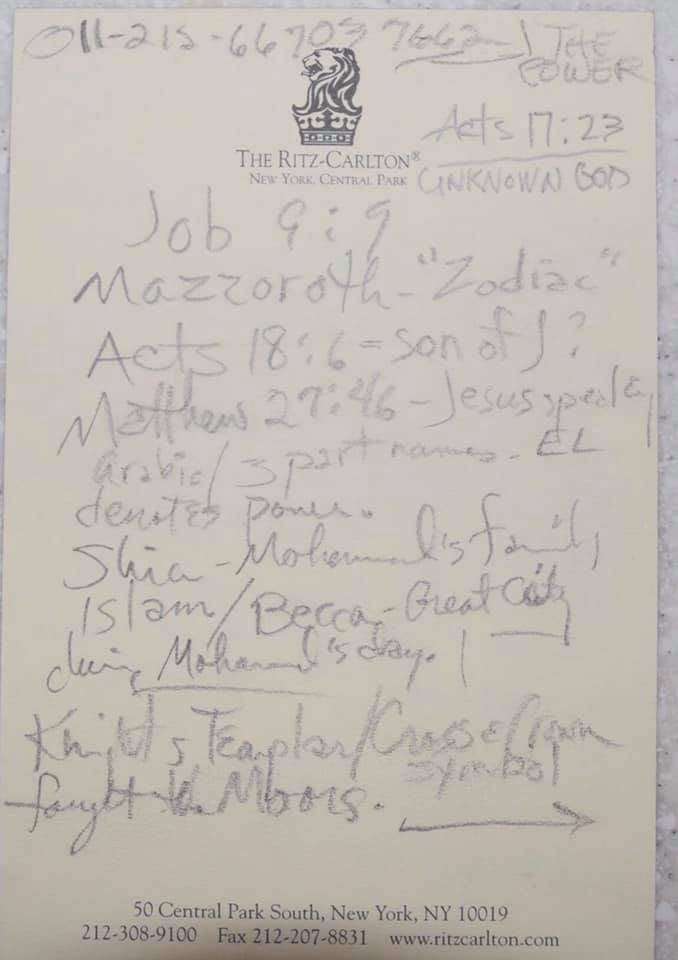 011-215-66703 7662
THE
POWER
Acts 17:23
THE RITZ-CARLTON®
NEW YORK, CENTRAL PARK
UNKNOWN GOD
Job 9:9
Mazzoroth - "Zodiac"
Acts 18:6 = son of J?
Matthew 27:46 - Jesus speaking
Arabic/3 part names. EL
denotes power.
Shia - Mohammad's family
Islam/Becca - Great City
during Mohammad's day.
Knights Templar/Cross & Crown
symbol
fought w. Moors.
50 Central Park South, New York, NY 10019
212-308-9100 Fax 212-207-8831 www.ritzcarlton.com